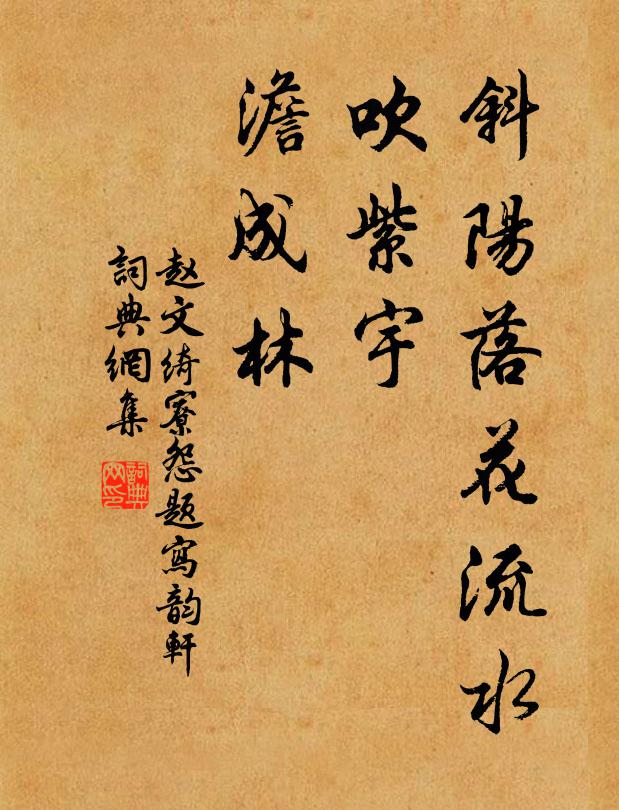 斜陽落花流水
吹紫宇
澹成林
赵文绮寮怨题寫韵軒
詞典網集
詞典網印